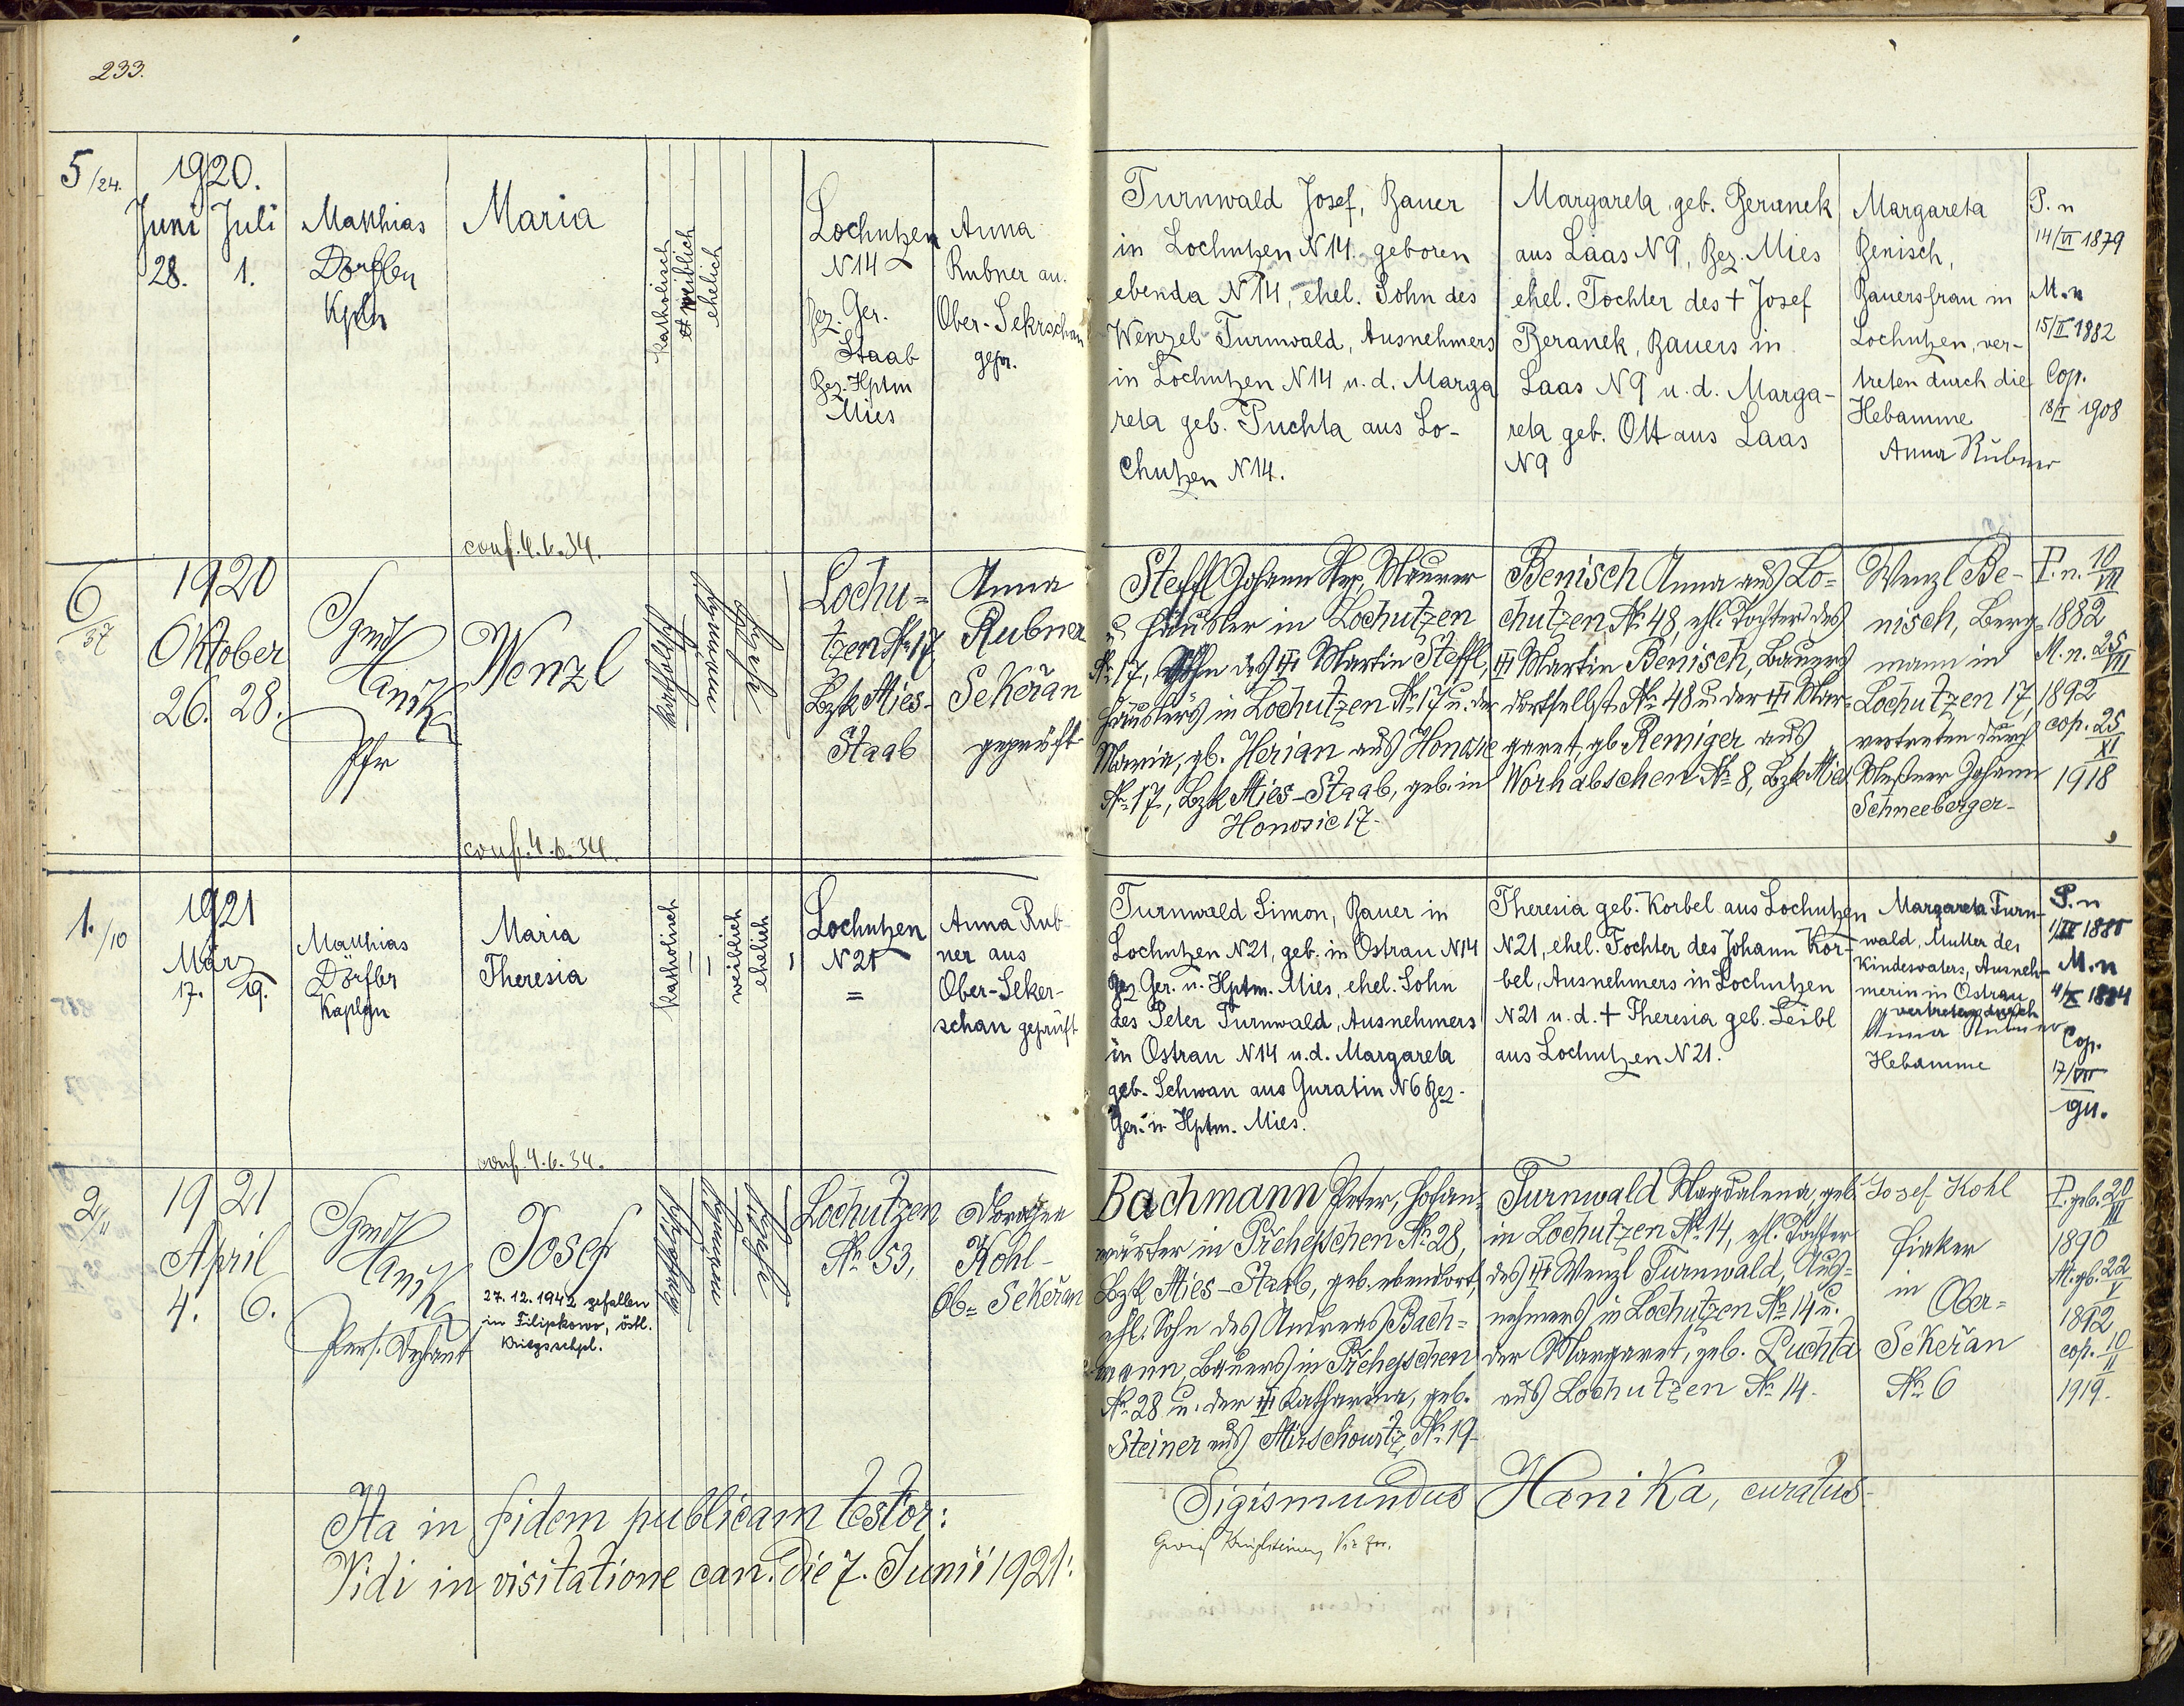 233.
5/24.
1920.
Juni Juli
28. 1.
Matthias
Dörfler
Kpln
Maria
katholisch
weiblich
ehelich
Lochutzen
N14
Bez. Ger.
Staab
Bez. Hptm
Mies
Anna
Rubner au.
Ober-Sekrschan
gepr.
conf. 4.6.34.
Turnwald Josef, Bauer
in Lochutzen N14. geboren
ebenda N14, ehel. Sohn des
Wenzel Turnwald, Ausnehmers
in Lochutzen N14 u. d. Marga
reta geb. Puchta aus Lo-
chutzen N14.
Margareta, geb. Beranek
aus Laas N9, Bez. Mies
ehel. Tochter des † Josef
Beranek, Bauers in
Laas N9 u. d. Marga-
reta geb. Ott aus Laas
N9
Margareta
Benisch,
Bauersfrau in
Lochutzen, ver-
treten durch die
Hebamme
Anna Rubner
P. n
14/VI 1879
M. n
15/II 1882
Cop.
18/I 1908
6/37
1920
Oktober
26. 28.
Sigmd
Hanika
Pfr
Wenzl
katholisch
ehelich
Lochu=
tzen Nr. 17
Bzk Mies-
Staab
Anna
Rubner
Sekeřan
geprüft
conf. 4.6.34.
Steffl Johann Nep, Maurer
u. Häusler in Lochutzen
Nr. 17, Sohn des Martin Steffl,
Häuslers in Lochutzen Nr. 17 u. der
Maria, gb. Herian aus Honosic
Nr. 17, Bzk Mies-Staab, geb. in
Honosic 17.
Benisch Anna aus Lo=
chutzen Nr. 48, ehl. Tochter des
Martin Benisch, Bauers
dortselbst Nr. 48 u. der Mar=
garet, gb. Remiger aus
Worhabschen Nr. 8, Bzk Mies
Wenzl Be-
nisch, Berg=
mann in
Lochutzen 17,
vertreten durch
Meßner Johann
Schneeberger-
P. n. 10/VII
1882
M. n. 25/VII
1892
cop. 25/XI
1918
1./10
1921
März
17. 19.
Matthias
Dörfler
Kaplan
Maria
Theresia
katholisch
weiblich
ehelich
Lochutzen
N21
=
Anna Rub-
ner aus
Ober-Seker-
schan geprüft
conf. 4.6.34.
Turnwald Simon, Bauer in
Lochutzen N21, geb. in Ostrau N14
Bez. Ger. u. Hptm. Mies, ehel. Sohn
des Peter Turnwald, Ausnehmers
in Ostrau N14 u. d. Margareta
geb. Schwan aus Guratin N6 Bez.
Ger. u Hptm. Mies.
Theresia geb. Korbel aus Lochutzen
N21, ehel. Tochter des Johann Kor-
bel, Ausnehmers in Lochutzen
N21 u. d. † Theresia geb. Leibl
aus Lochutzen N21.
Margareta Turn-
wald, Mutter des
Kindesvaters, Ausneh-
merin in Ostrau
vertreten durch
Anna Rubner
Hebamme
P. n
M. n
4/X 1884
Cop.
17/VII
911.
2/11
1921
April
4. 6.
Sigmd
Hanika
Pers. Dechant
Josef
27.12.1942 gefallen
in Filipkowo, östl.
Kriegsschpl.
katholisch
ehelich
Lochutzen
Nr. 53,
Dorothea
Kohl-
Ob= Sekeřan
Bachmann Peter, Hofan=
wärter in Přehejschen Nr. 28,
Bzk Mies-Staab, geb. ebendort,
ehl. Sohn des Andreas Bach=
mann, Bauers in Přehejschen
Nr. 28 u. der Katharina, geb.
Steiner aus Mirschowitz Nr. 19-
Turnwald Magdalena, geb.
in Lochutzen Nr. 14, ehl. Tochter
des Wenzl Turnwald, Aus=
nehmers in Lochutzen Nr. 14 u.
der Margaret, geb. Puchta
aus Lochutzen Nr. 14.
Josef Kohl
Fiaker
in
Ober=
Sekeřan
Nr. 6
P. geb. 20/III
1890
M. gb. 22/V
1892
cop. 10/II
1919.
Ita in fidem publicam testor:
Sigismundus Hanika, curatus
Vidi in visitatione can. die 7. Junii 1921: